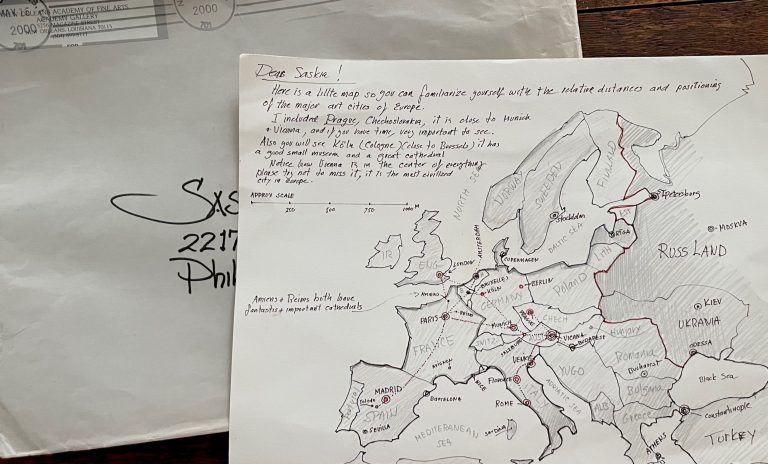 NEW ORLEANS ACADEMY OF FINE ARTS
ACADEMY GALLERY
5256 MAGAZINE STREET
ORLEANS, LOUISIANA 70115
2000
2000
FOR
2217
Phil
Dear Saskia!
Here is a little map so you can familiarize yourself with the relative distances and positioning
of the major art cities of Europe.
I included Prague, Chechoslovakia, it is close to Munich
+ Vienna, and if you have time, very important to see.
Also you will see Köln (Cologne) (close to Brussels) it has
a good small museum and a great cathedral
Notice how Vienna is in the center of everything
please try not to miss it, it is the most civilized
city in Europe.
APPROX SCALE
250 500 1000 M
NORTH SEA
NORWAY
SWEDEN
FINLAND
Petersburg
Stockholm
BALTIC SEA
EST
RIGA
MOSKVA
LITH
RUSSLAND
IR
ENG
LONDON
AMSTERDAM
COPENHAGEN
BRUXELLES
KÖLN
BERLIN
GERMANY
Poland
KIEV
UKRANIA
Amiens + Reims both have
fantastic + important cathedrals
AMIENS
REIMS
PARIS
PRAGUE
CZECH
MUNICH
FRANCE
SWITZ
SALZBURG
VIENNA
BUDAPEST
Hungary
ODESSA
VENICE
YUGO
Romania
Bucharest
Black Sea
NICE
Florence
ADRIATIC SEA
Bulgaria
MADRID
Toledo
Barcelona
Portugal
SPAIN
SEVILLA
ROME
ALB
Greece
Constantinople
MEDITERANEAN
SEA
Sardinia
ATHENS
TURKEY